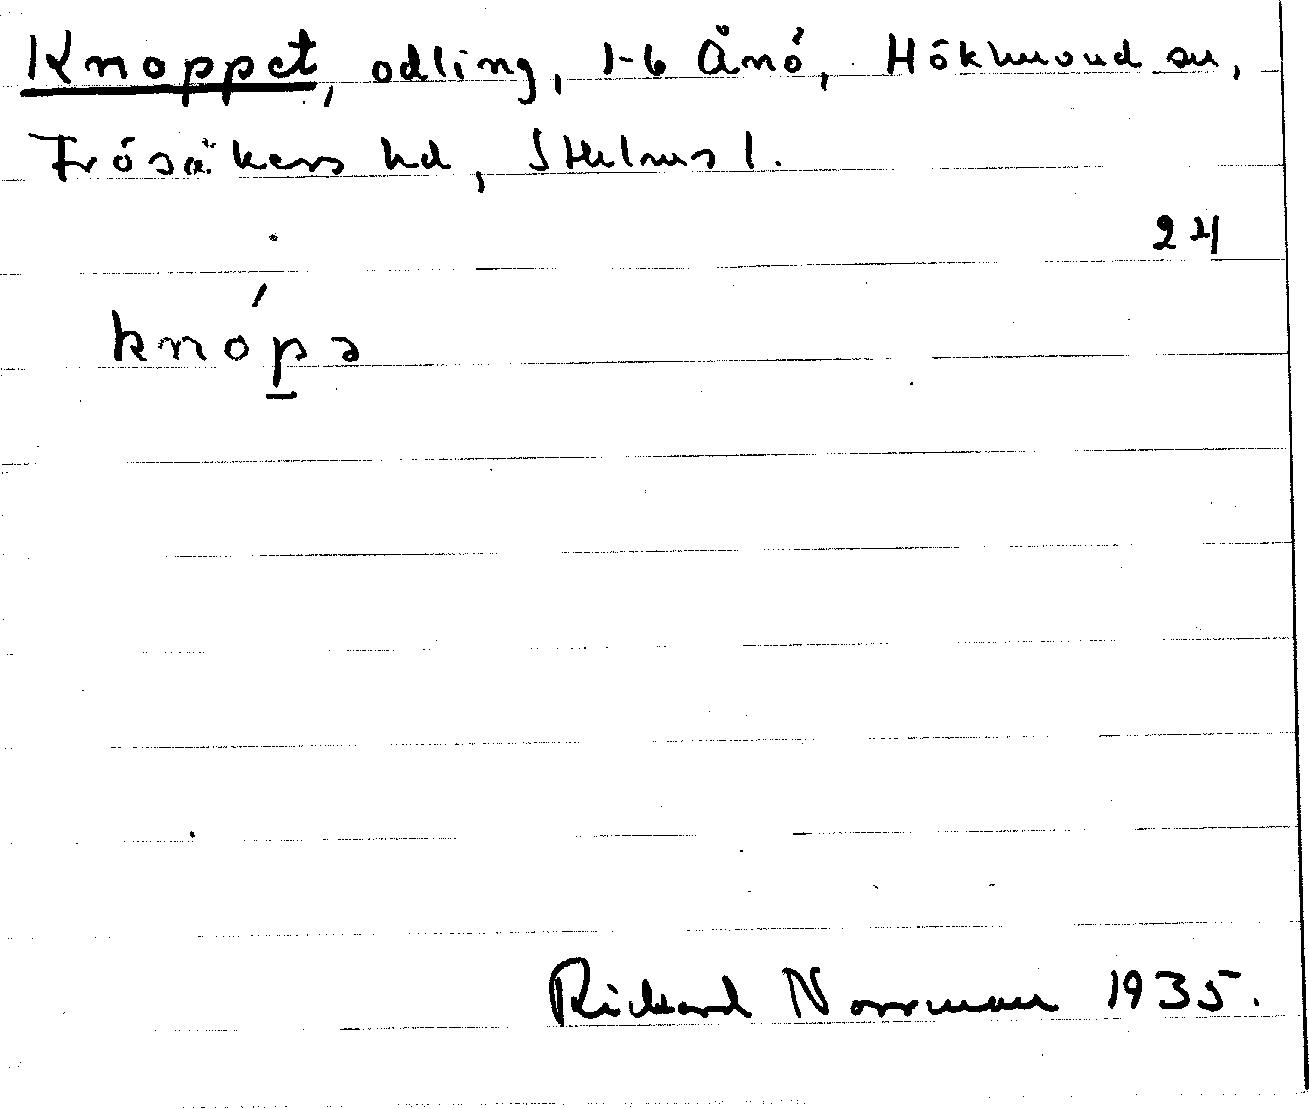 Knoppet, odling, 1-6 Ånö, Hökhuvud sn,
Frösåkers hd, Sthlms l.
24
knópə
Rickard Norrman 1935.